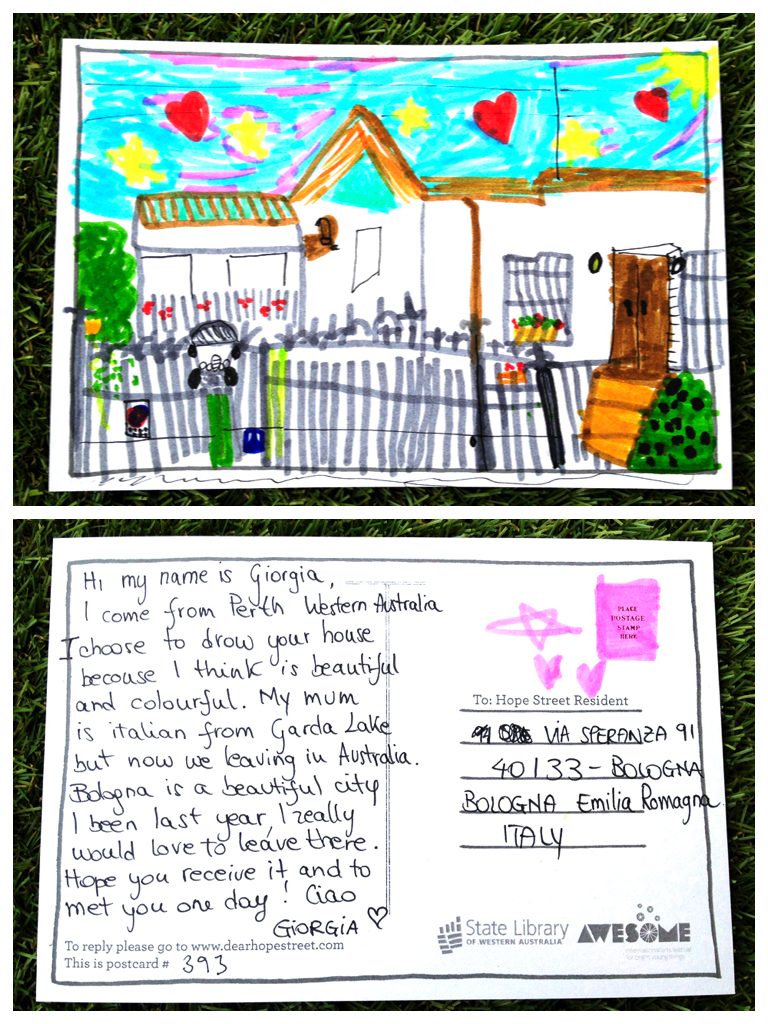 Hi my name is Giorgia,
I come from Perth Western Australia
I choose to drow your house
becouse I think is beautiful
and colourful. My mum
is italian from Garda Lake
but now we leaving in Australia.
Bologna is a beautiful city
I been last year, I really
would love to leave there.
Hope you receive it and to
met you one day! Ciao
GIORGIA
To reply please go to www.dearhopestreet.com
This is postcard # 393
PLACE
POSTAGE
STAMP
HERE
To: Hope Street Resident
VIA SPERANZA 91
40133 - BOLOGNA
BOLOGNA Emilia Romagna
ITALY
State Library
OF WESTERN AUSTRALIA
AWESOME